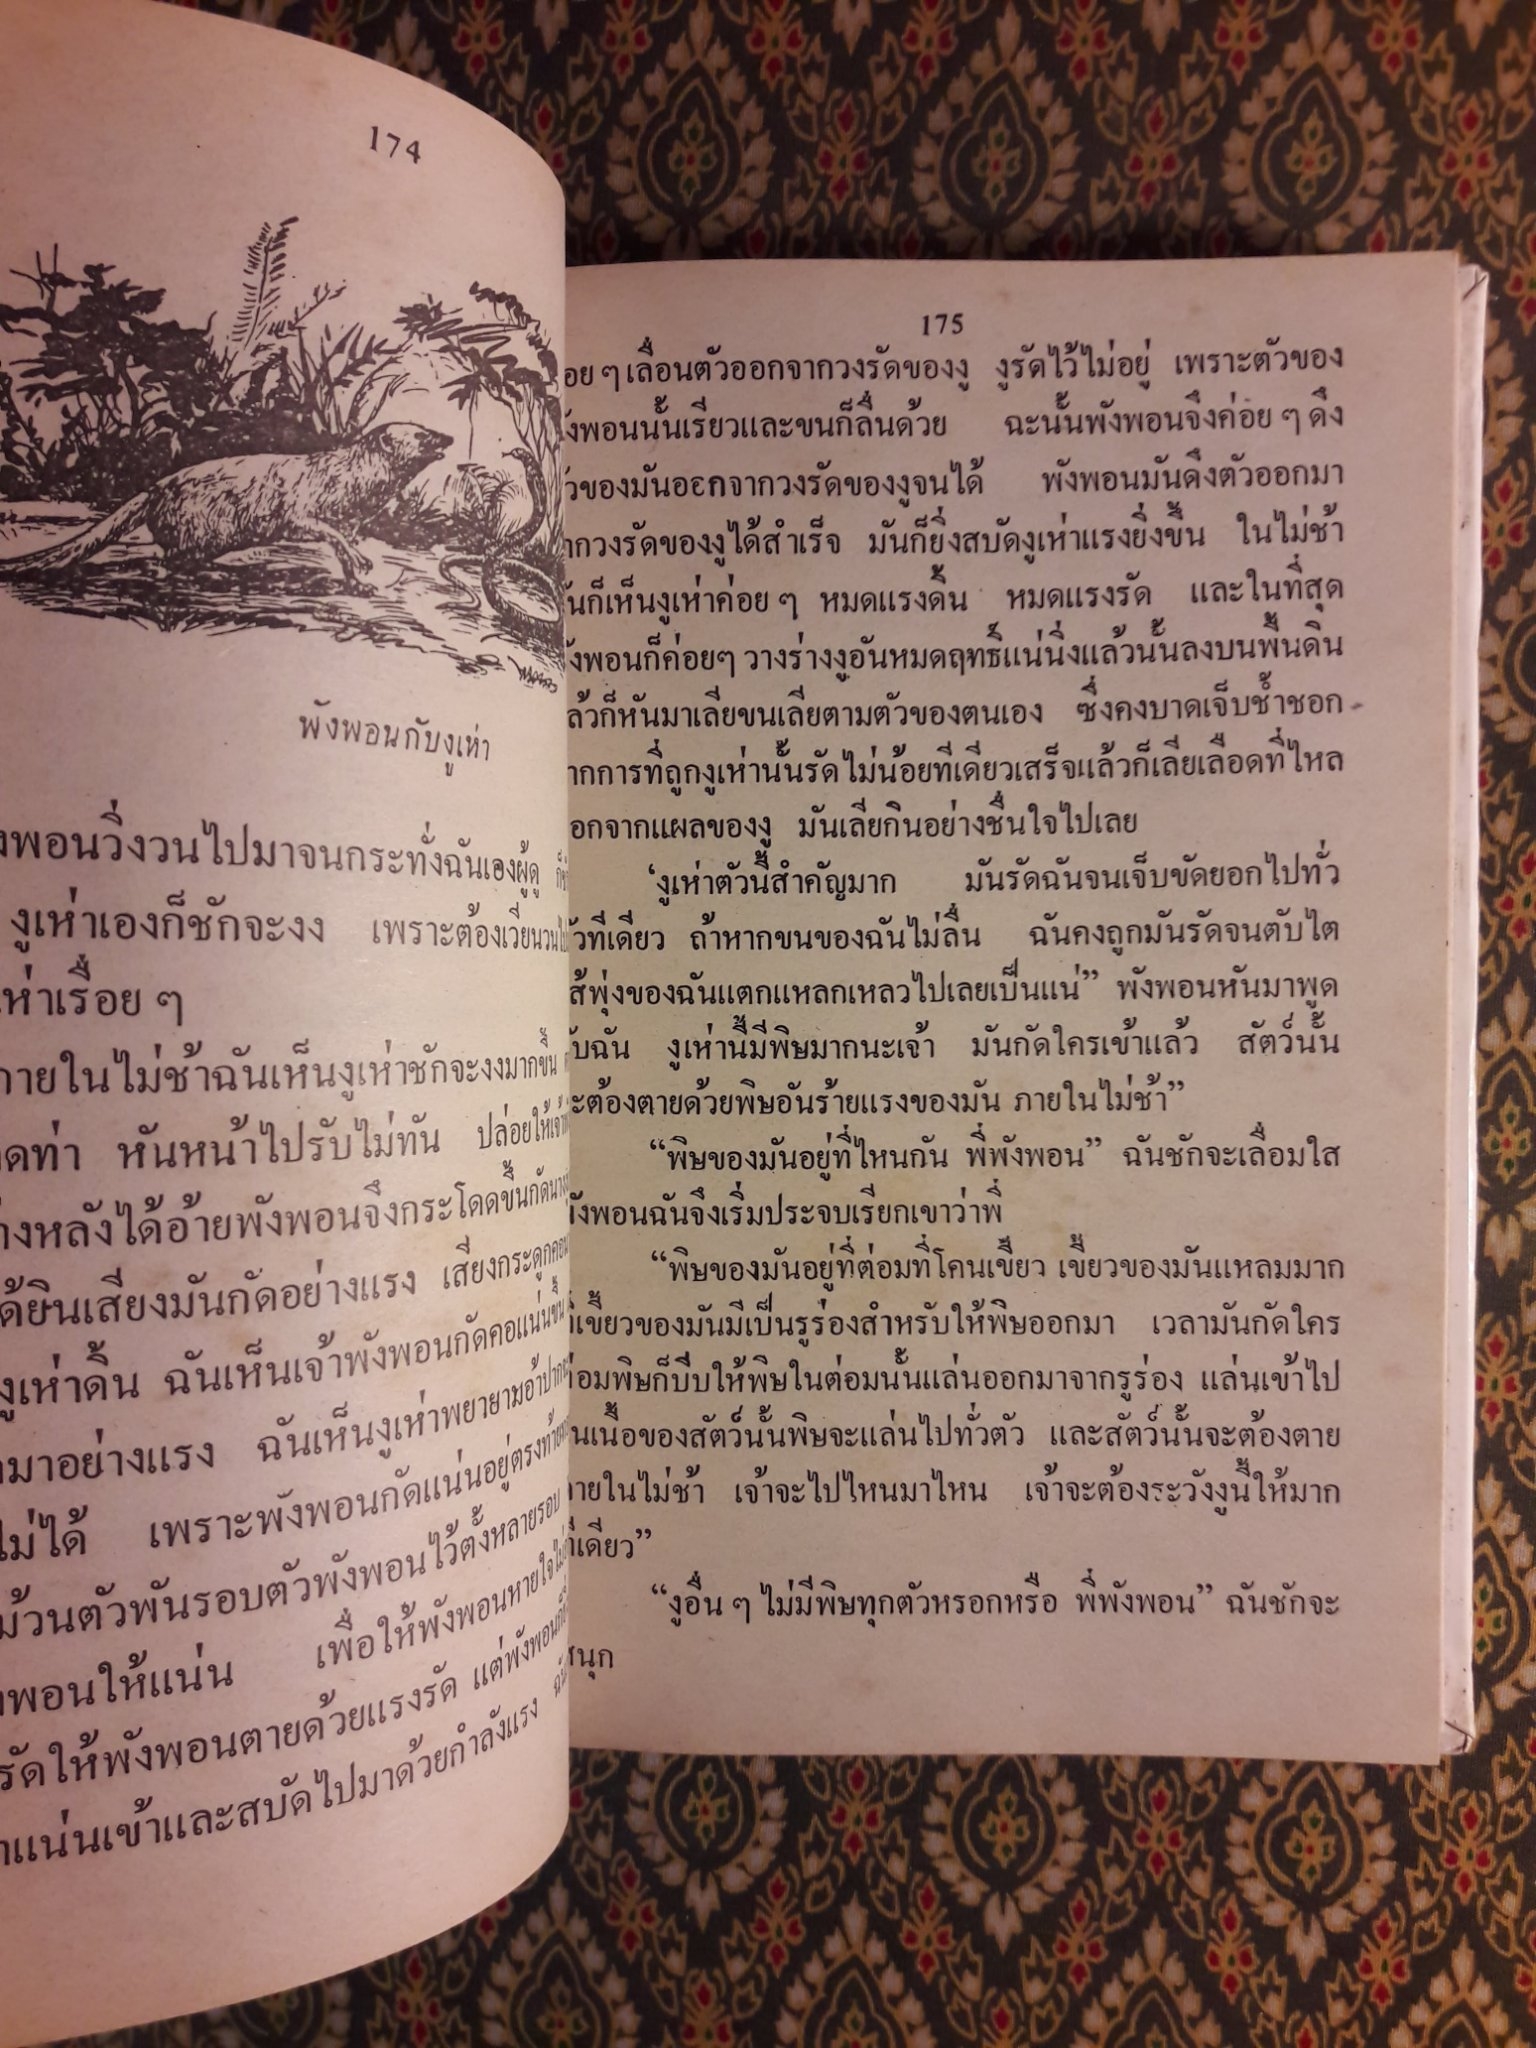 174
พังพอนกับงูเห่า
พอนวิ่งวนไปมาจนกระทั่งฉันเองผู้ดู
งูเห่าเองก็ชักจะงง เพราะต้องเวียนวน
ห่าเรื่อย ๆ
ภายในไม่ช้าฉันเห็นงูเห่าชักจะงงมากขึ้น
ท่า หันหน้าไปรับไม่ทัน ปล่อยให้เจ้า
างหลังได้อ้ายพังพอนจึงกระโดดขึ้นกัด
ได้ยินเสียงมันกัดอย่างแรง เสียงกระดูกคอ
งูเห่าดิ้น ฉันเห็นเจ้าพังพอนกัดคอแน่นขึ้น
มาอย่างแรง ฉันเห็นงูเห่าพยายามอ้าปาก
ไม่ได้ เพราะพังพอนกัดแน่นอยู่ตรงท้าย
ม้วนตัวพันรอบตัวพังพอนไว้ตั้งหลายรอบ
พอนให้แน่น เพื่อให้พังพอนหายใจ
รัดให้พังพอนตายด้วยแรงรัด แต่พังพอน
แน่นเข้าและสบัดไปมาด้วยกำลังแรง
175
อย ๆ เลื่อนตัวออกจากวงรัดของงู งูรัดไว้ไม่อยู่ เพราะตัวของ
ังพอนนั้นเรียวและขนก็ลื่นด้วย ฉะนั้นพังพอนจึงค่อย ๆ ดึง
ัวของมันออกจากวงรัดของงูจนได้ พังพอนมันดึงตัวออกมา
ากวงรัดของงูได้สำเร็จ มันก็ยิ่งสบัดงูเห่าแรงยิ่งขึ้น ในไม่ช้า
ันก็เห็นงูเห่าค่อย ๆ หมดแรงดิ้น หมดแรงรัด และในที่สุด
ังพอนก็ค่อยๆ วางร่างงูอันหมดฤทธิ์แน่นิ่งแล้วนั้นลงบนพื้นดิน
ล้วก็หันมาเลียขนเลียตามตัวของตนเอง ซึ่งคงบาดเจ็บช้ำชอก
ากการที่ถูกงูเห่านั้นรัดไม่น้อยทีเดียวเสร็จแล้วก็เลียเลือดที่ไหล
อกจากแผลของงู มันเลียกินอย่างชื่นใจไปเลย
‘งูเห่าตัวนี้สำคัญมาก มันรัดฉันจนเจ็บขัดยอกไปทั่ว
ัวทีเดียว ถ้าหากขนของฉันไม่ลื่น ฉันคงถูกมันรัดจนตับไต
ส้พุงของฉันแตกแหลกเหลวไปเลยเป็นแน่” พังพอนหันมาพูด
ับฉัน งูเห่านี้มีพิษมากนะเจ้า มันกัดใครเข้าแล้ว สัตว์นั้น
ะต้องตายด้วยพิษอันร้ายแรงของมัน ภายในไม่ช้า”
“พิษของมันอยู่ที่ไหนกัน พี่พังพอน” ฉันชักจะเลื่อมใส
ังพอนฉันจึงเริ่มประจบเรียกเขาว่าพี่
“พิษของมันอยู่ที่ต่อมที่โคนเขี้ยว เขี้ยวของมันแหลมมาก
ี่เขี้ยวของมันมีเป็นรูร่องสำหรับให้พิษออกมา เวลามันกัดใคร
่อมพิษก็บีบให้พิษในต่อมนั้นแล่นออกมาจากรูร่อง แล่นเข้าไป
นเนื้อของสัตว์นั้นพิษจะแล่นไปทั่วตัว และสัตว์นั้นจะต้องตาย
ายในไม่ช้า เจ้าจะไปไหนมาไหน เจ้าจะต้องระวังงูนี้ให้มาก
ทีเดียว”
“งูอื่น ๆ ไม่มีพิษทุกตัวหรอกหรือ พี่พังพอน” ฉันชักจะ
สนุก